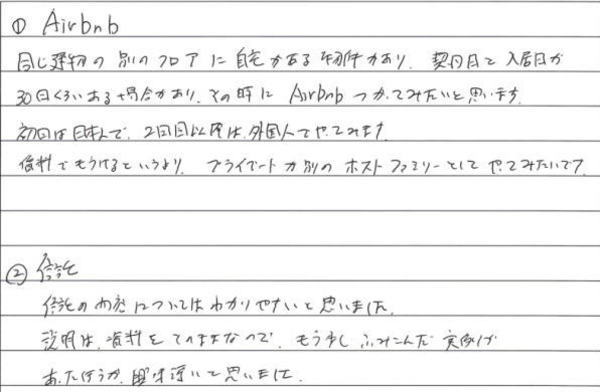 ① Airbnb
同じ建物の別のフロアに自宅がある物件があり、契約日と入居日が
30日くらいある場合があり、その時にAirbnbつかってみたいと思います。
初回は日本人で、2回目以降は、外国人でやってみます。
賃料でもうけるというより、プライベートが別のホストファミリーとしてやってみたいです。
② 信託
信託の内容についてはわかりやすいと思いました。
説明は、資料そのままなので、もう少しふみこんだ実例が
あったほうが、興味深いと思いました。